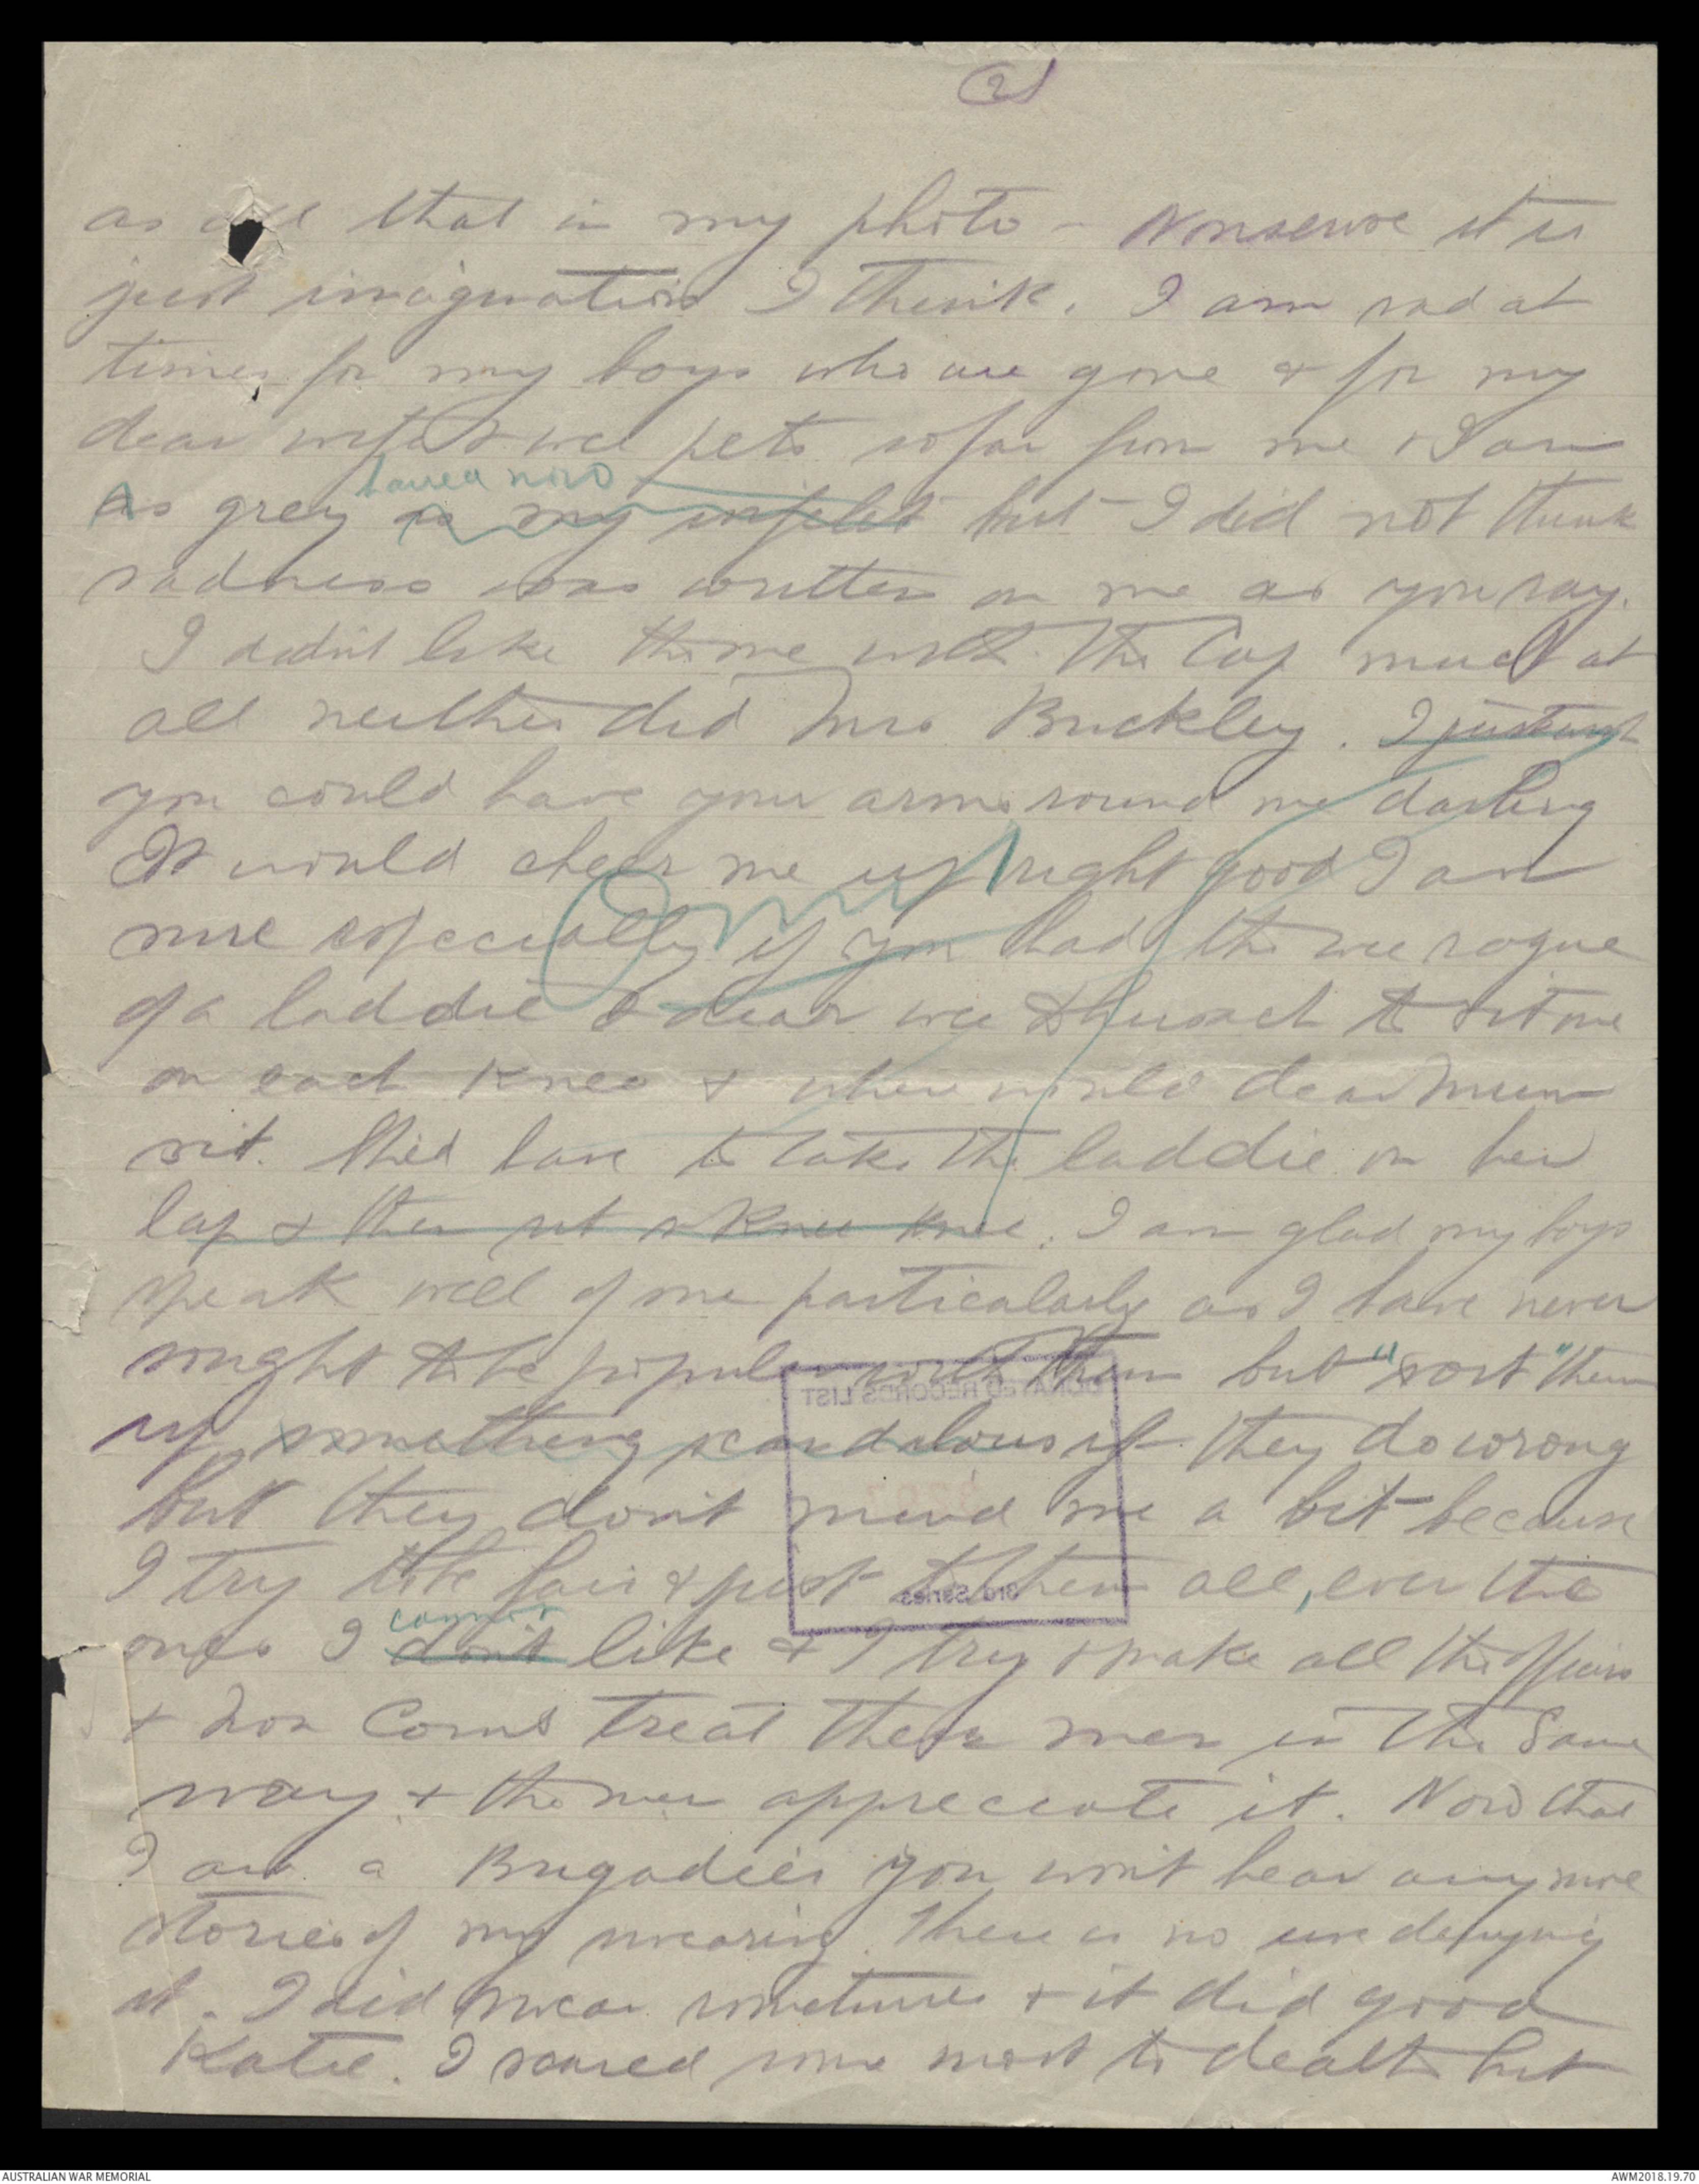 2
as all that in my photo - Nonsense it is
just imagination I think. I am sad at
times for my boys who are gone & for my
dear wife & wee pets so far from me & I am
haired now
As grey as my but I did not think
sadness was written on me as you say.
I didn't like the one with the Cap much at
all neither did Mrs Buckley. I just wish
you could have your arms round me darling
It would cheer me up right good I am
Omit
sure especially if you had the wee rogue
of a laddie & dear wee to sit one
on each knee & where would dear Mum
sit. She'd have to take the laddie on her
lap & then sit a knee knee. I am glad my boys
speak well of me particularly as I have never
sought to be popular with them but "roast" them
up something scandalous if they do wrong
but they don't mind me a bit because
I try to be fair & just to them all, even the
cannot
ones I don't like & I try & make all the officers
& Non Coms treat their men in the same
way & the men appreciate it. Now that
I am a Brigadier you won't hear any more
stories of my swearing. There is no use denying
it. I did swear sometimes & it did good
Katie. I scared some most to death but
DONATED RECORDS LIST
3rd Series
AUSTRALIAN WAR MEMORIAL
AWM2018.19.70